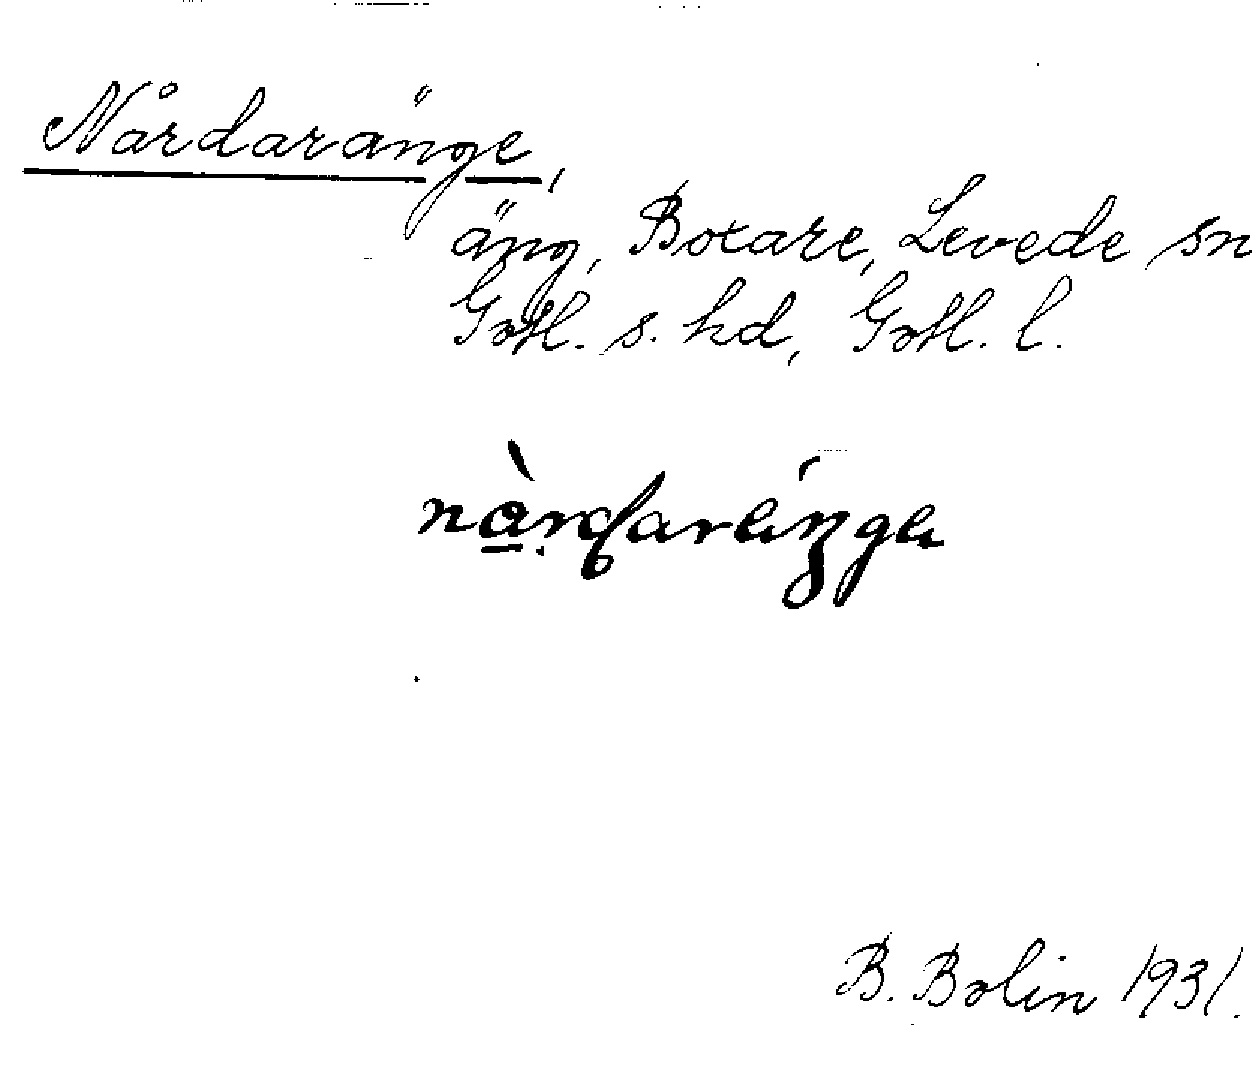 Nårdaränge,
äng, Botare, Levede sn
Gotl. s. hd, Gotl. l.
B. Bolin 1931.